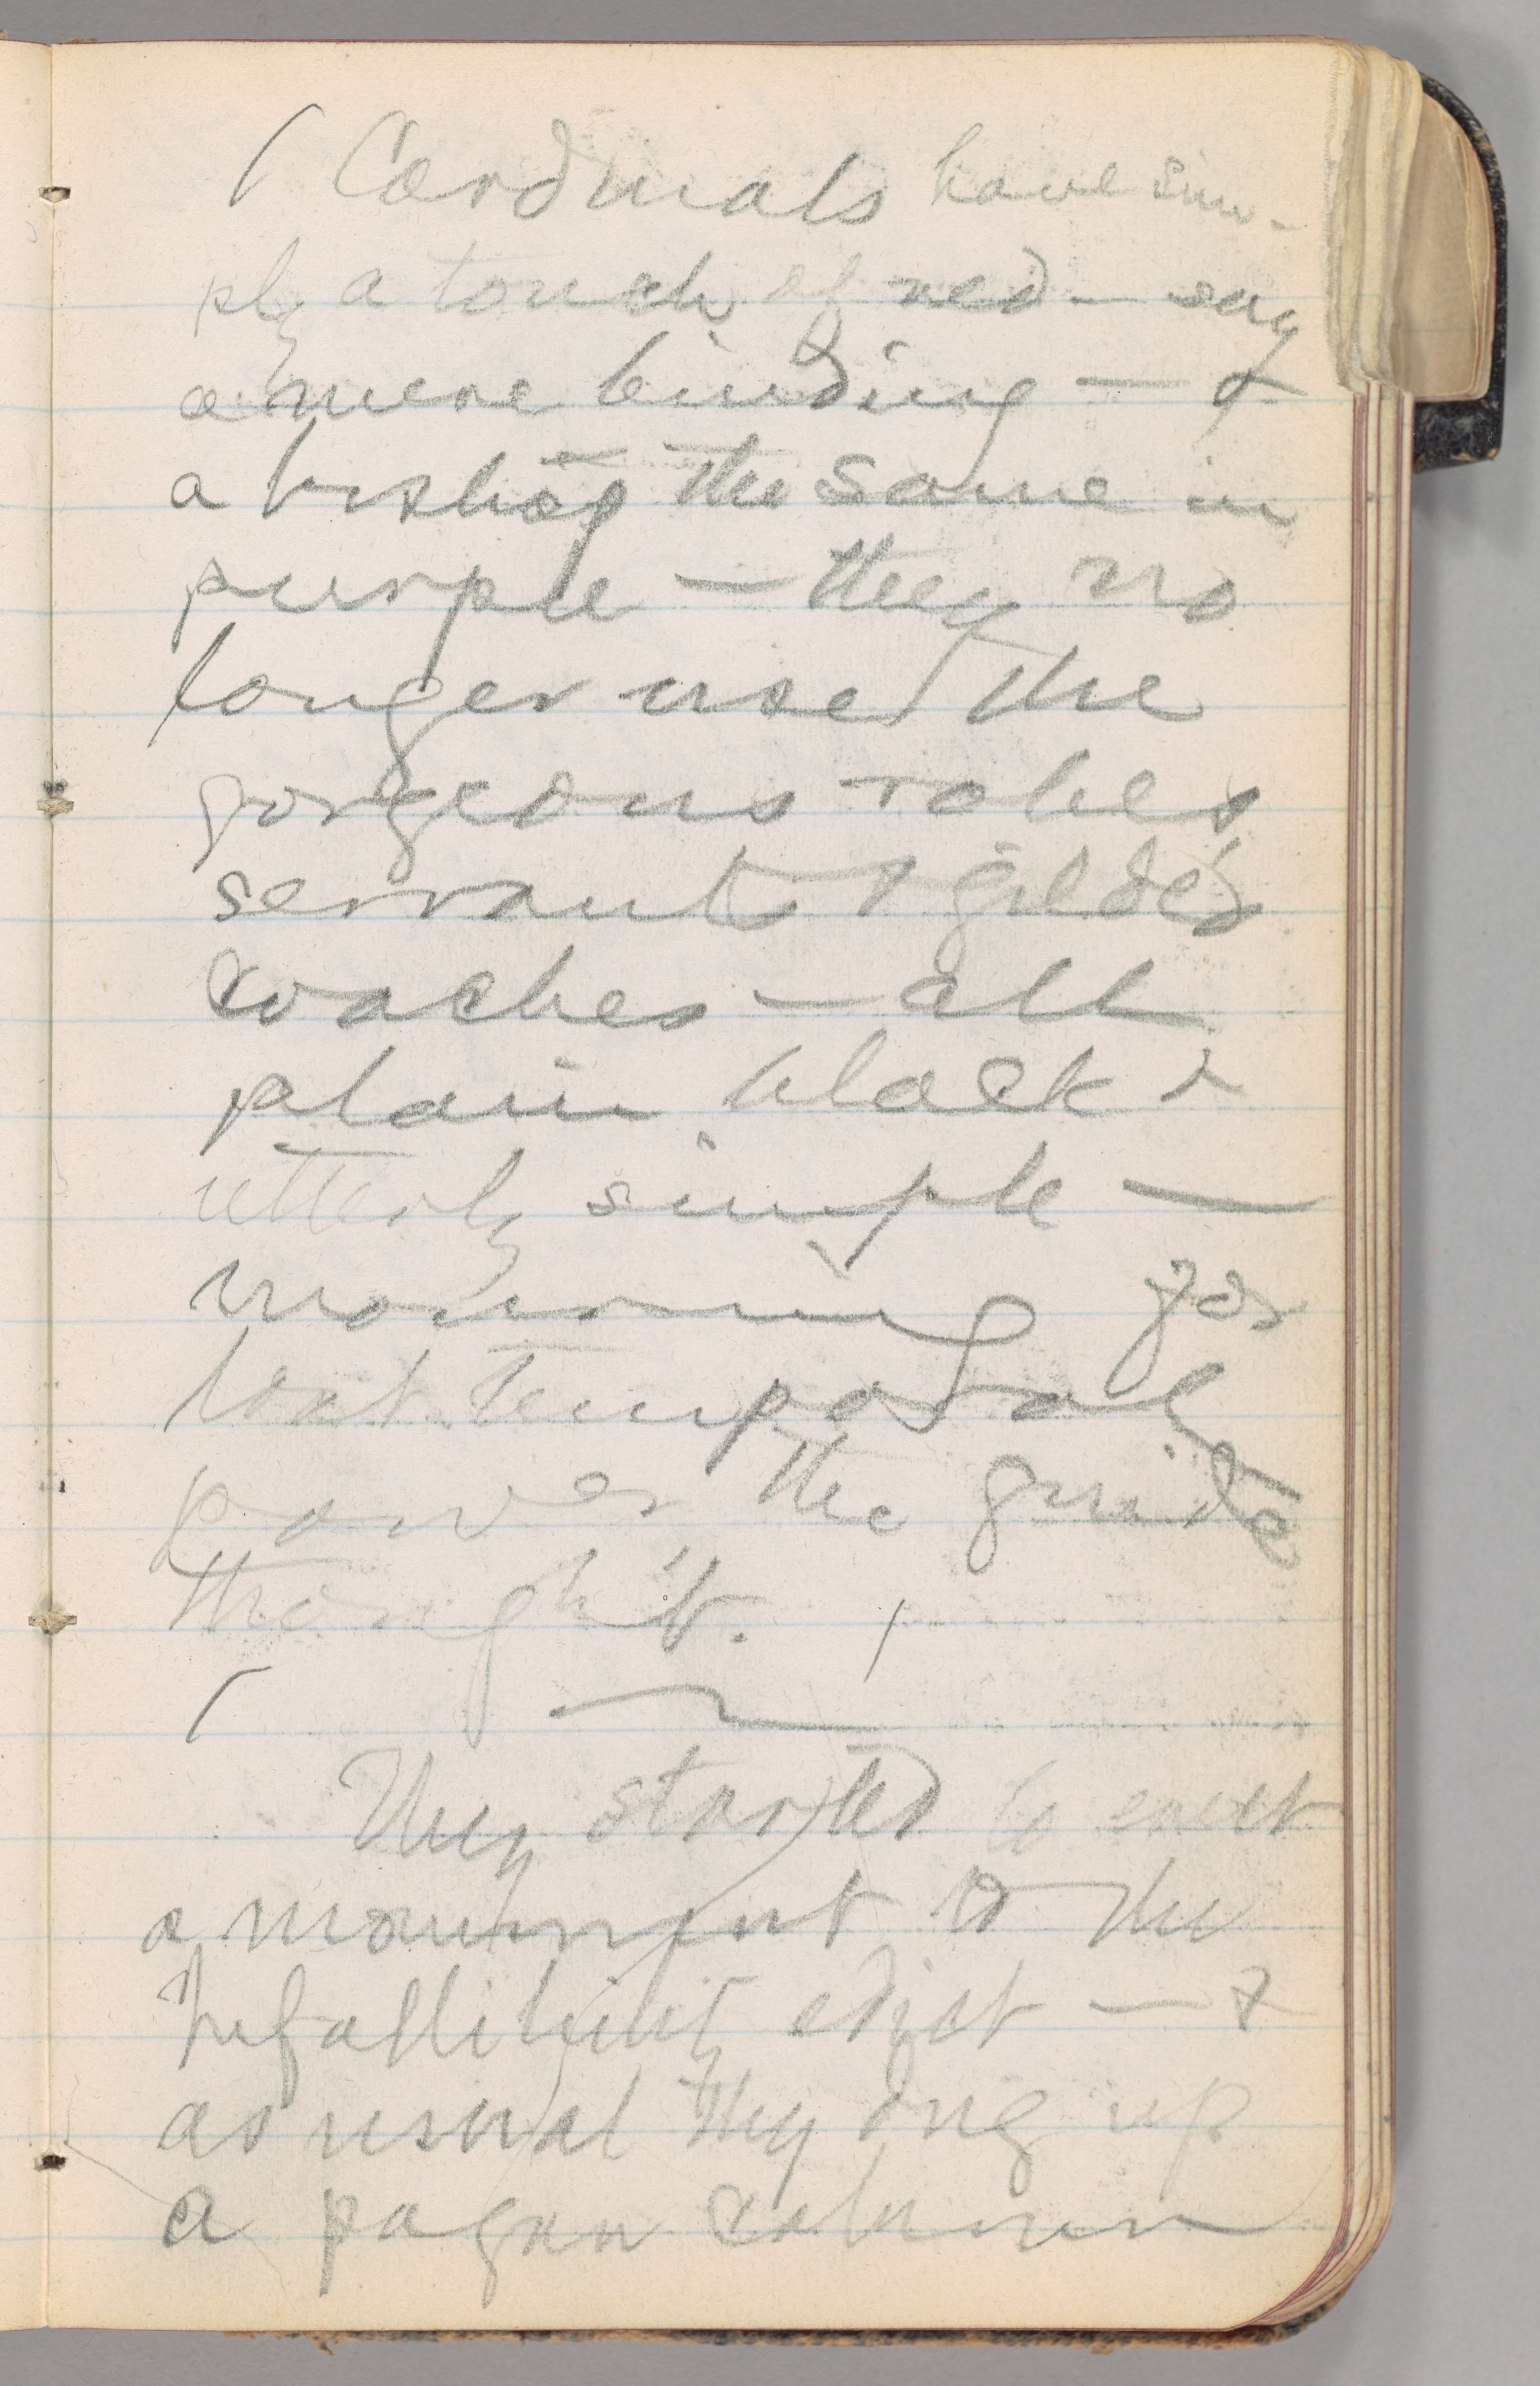 Cardinals have sim-
ply a touch of red — say
a mere binding — &
a bishop the same in
purple — they no
longer use the
gorgeous robes
servants & gilded
coaches — all
plain black &
utterly simple —
mourning for
lost temporal
power the guide
thought.
They started to erect
a monument to the
Infallibility edict — &
as usual they dug up
a pagan column